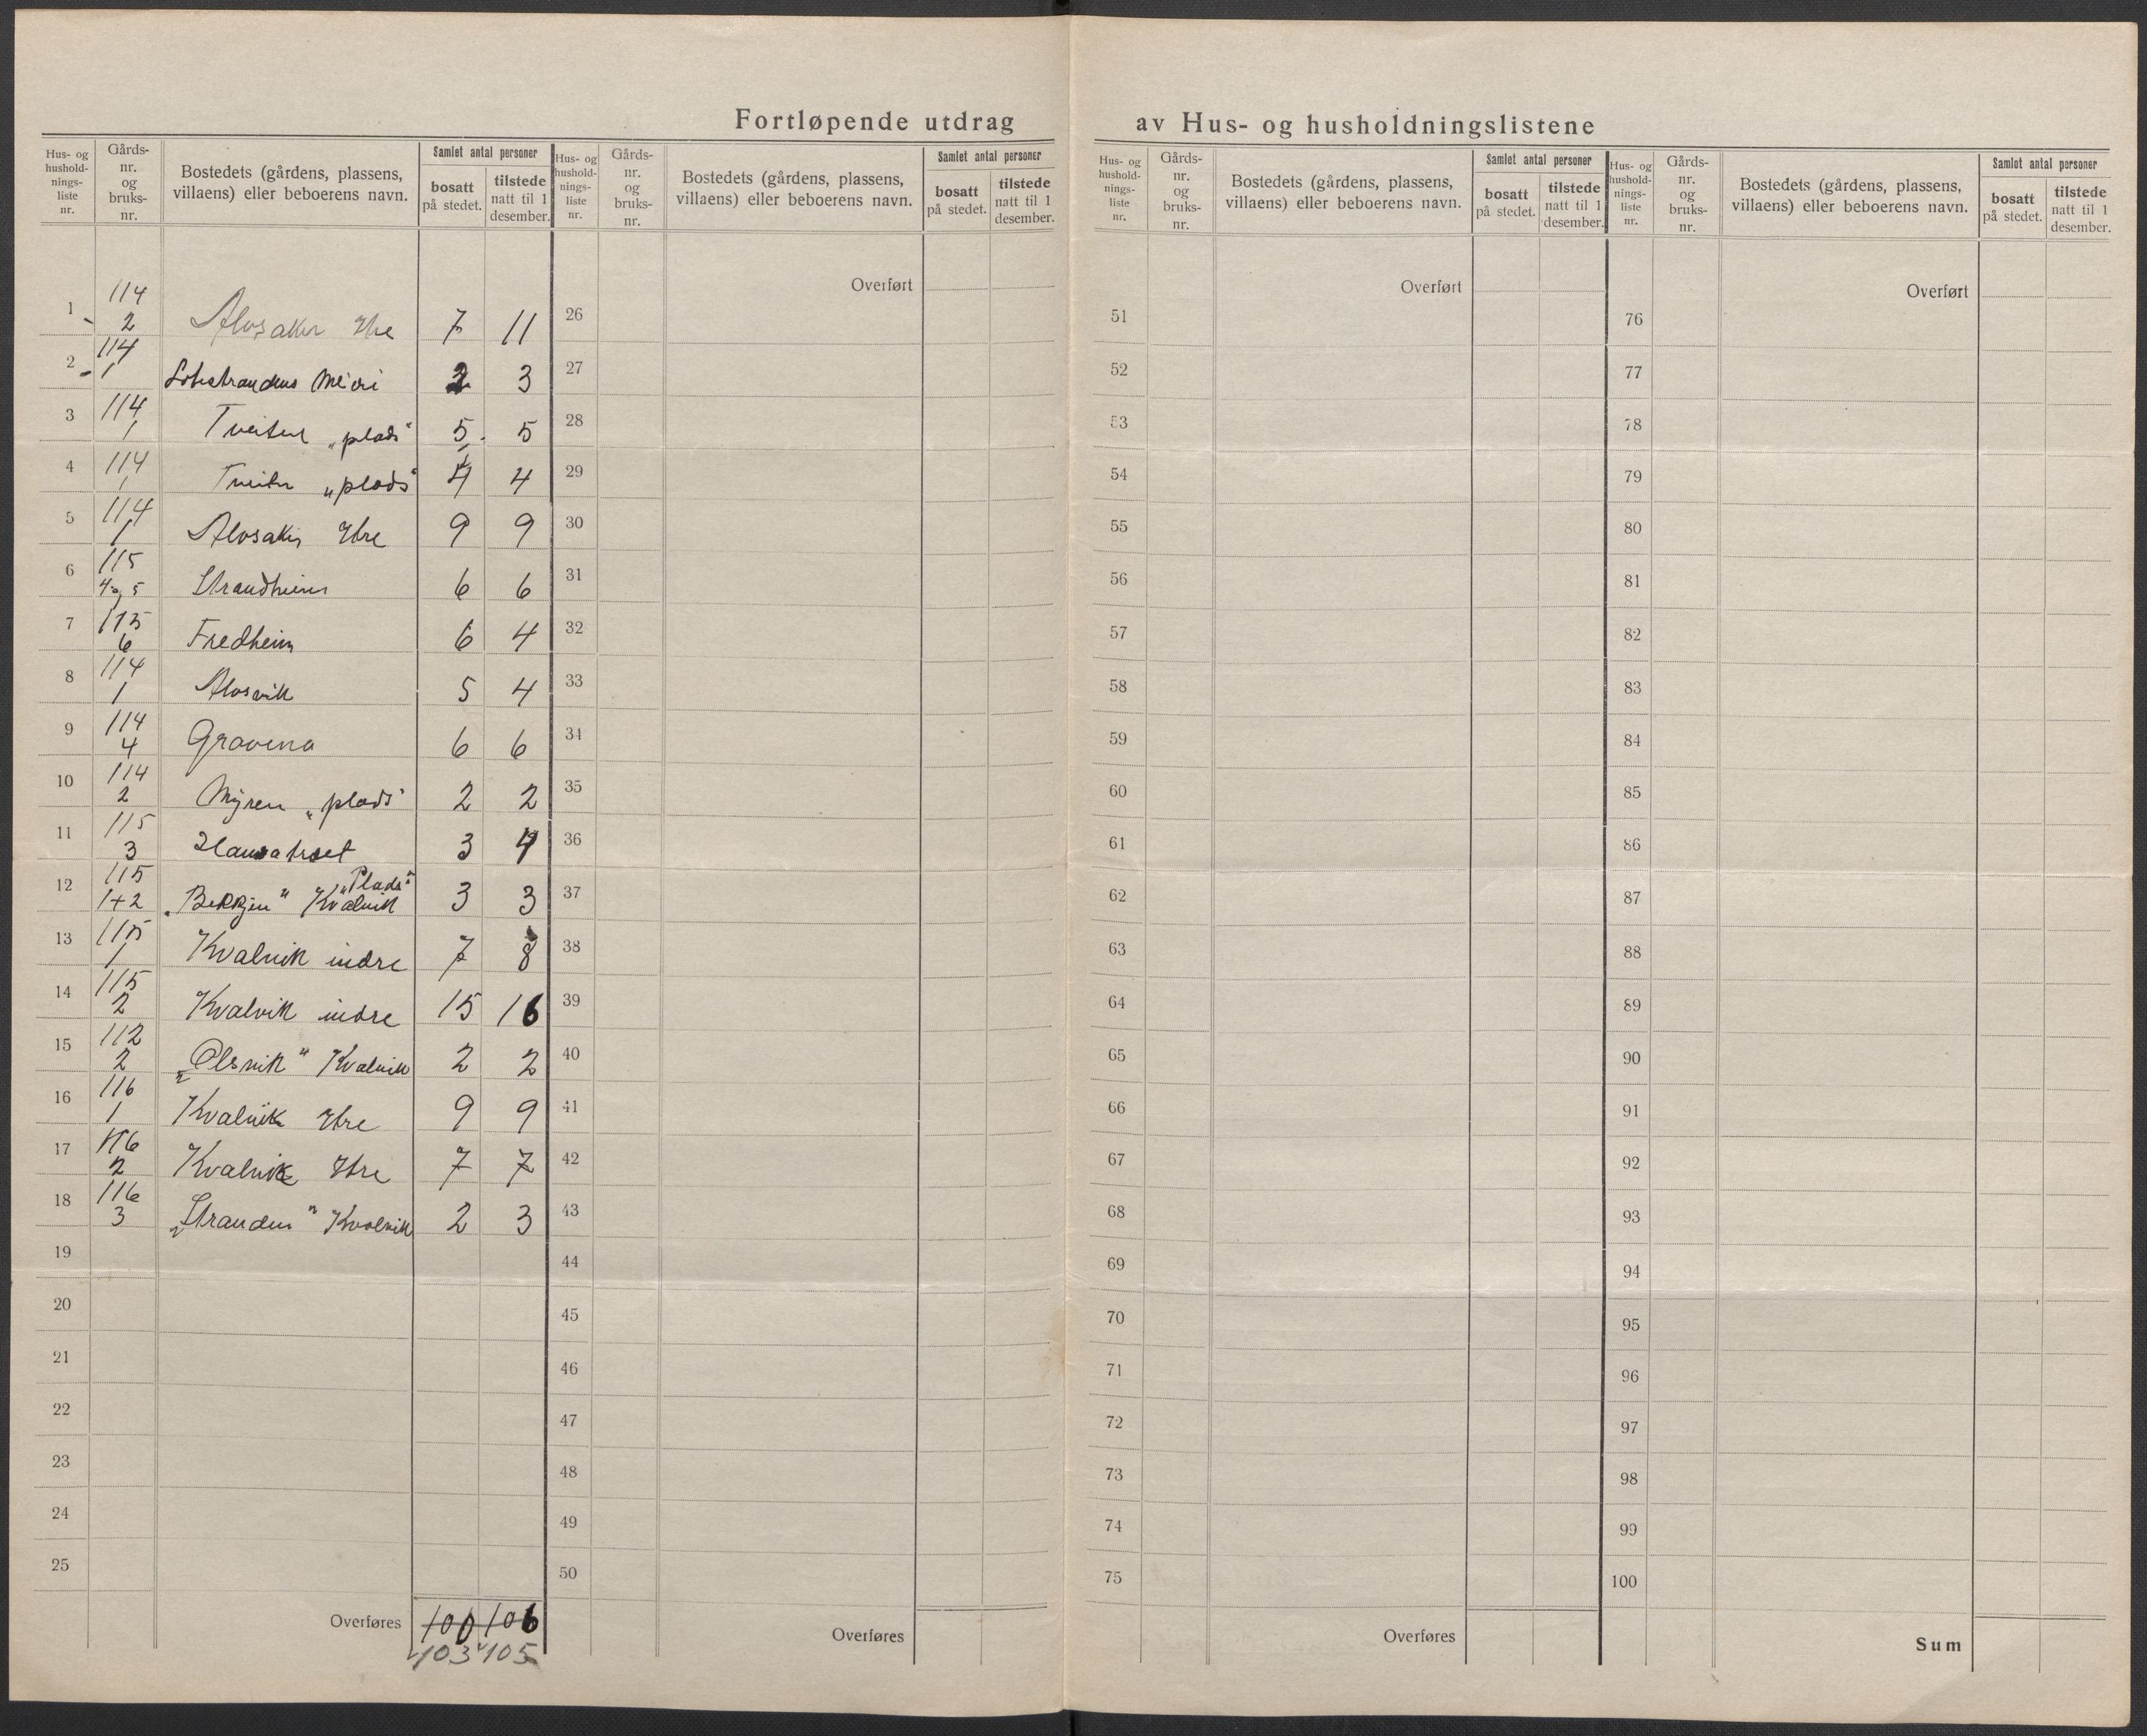 Fortløpende utdrag av Hus- og husholdningslistene
Hus- og
hushold-
nings-
liste
nr.
Gårds-
nr.
og
bruks-
nr.
Bostedets (gårdens, plassens,
villaens) eller beboerens navn.
Samlet antal personer
bosatt
på stedet.
tilstede
natt til 1
desember.
Hus- og
hushold-
nings-
liste
nr.
Gårds-
nr.
og
bruks-
nr.
Bostedets (gårdens, plassens,
villaens) eller beboerens navn.
Samlet antal personer
bosatt
på stedet.
tilstede
natt til 1
desember.
Hus- og
hushold-
nings-
liste
nr.
Gårds-
nr.
og
bruks-
nr.
Bostedets (gårdens, plassens,
villaens) eller beboerens navn.
Samlet antal personer
bosatt
på stedet.
tilstede
natt til 1
desember.
Hus- og
hushold-
nings-
liste
nr.
Gårds-
nr.
og
bruks-
nr.
Bostedets (gårdens, plassens,
villaens) eller beboerens navn.
Samlet antal personer
bosatt
på stedet.
tilstede
natt til 1
desember.
1 114 2 Alvsaker Ytre 7 11
2 114 1 Meieri 3
3 114 1 Tveiten „plads" 5 5
4 114 1 Tveiten „plads" 4 4
5 114 1 Alvsaker Ytre 9 9
6 115 5 Strandheim 6 6
7 115 6 Fredheim 6 4
8 114 1 Alvsvik 5 4
9 114 4 Gravena 6 6
10 114 2 Myren „plads" 2 2
11 115 3 3 4
12 115 1+2 „Bekkjen" Kvalvik „Plads" 3 3
13 115 1 Kvalvik indre 7 8
14 115 2 Kvalvik indre 15 16
15 112 2 „Olsvik" Kvalvik 2 2
16 116 1 Kvalvik Ytre 9 9
17 116 2 Kvalvik Ytre 7 7
18 116 3 „Stranden" Kvalvik 2 3
19
20
21
22
23
24
25
Overføres 100 106
103 105
Overført
26
27
28
29
30
31
32
33
34
35
36
37
38
39
40
41
42
43
44
45
46
47
48
49
50
Overføres
Overført
51
52
53
54
55
56
57
58
59
60
61
62
63
64
65
66
67
68
69
70
71
72
73
74
75
Overføres
Overført
76
77
78
79
80
81
82
83
84
85
86
87
88
89
90
91
92
93
94
95
96
97
98
99
100
Sum